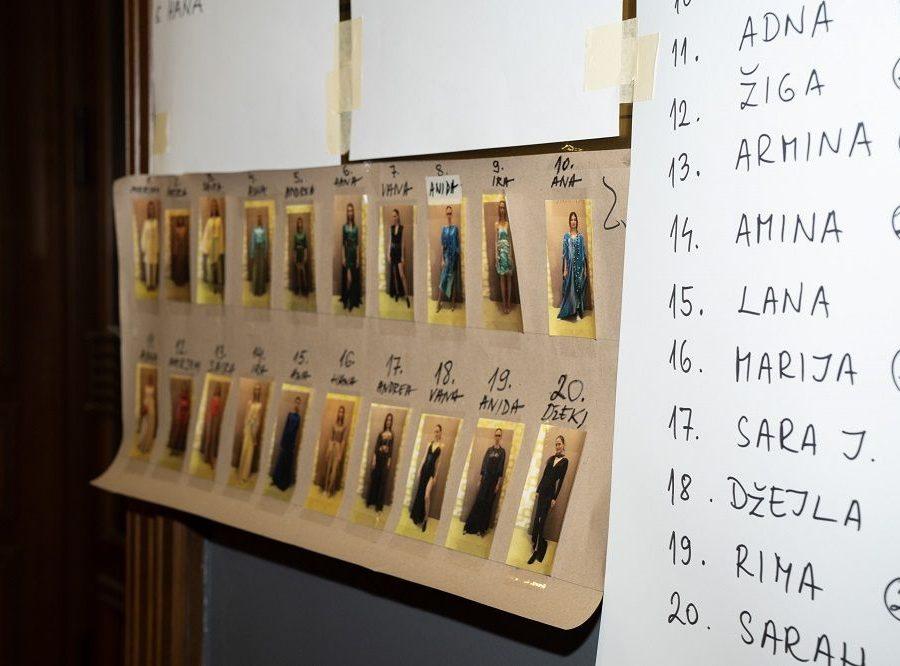 & HANA
7. VANA
8. ANIDA
9. IRA
10. ANA
15. ANA
16. HANA
17. ANDREA
18. VANA
19. ANIDA
20. DŽEKJ
10
11. ADNA
12. ŽIGA
13. ARMINA
14. AMINA
15. LANA
16. MARIJA
17. SARA J.
18. DŽEJLA
19. RIMA
20. SARAH